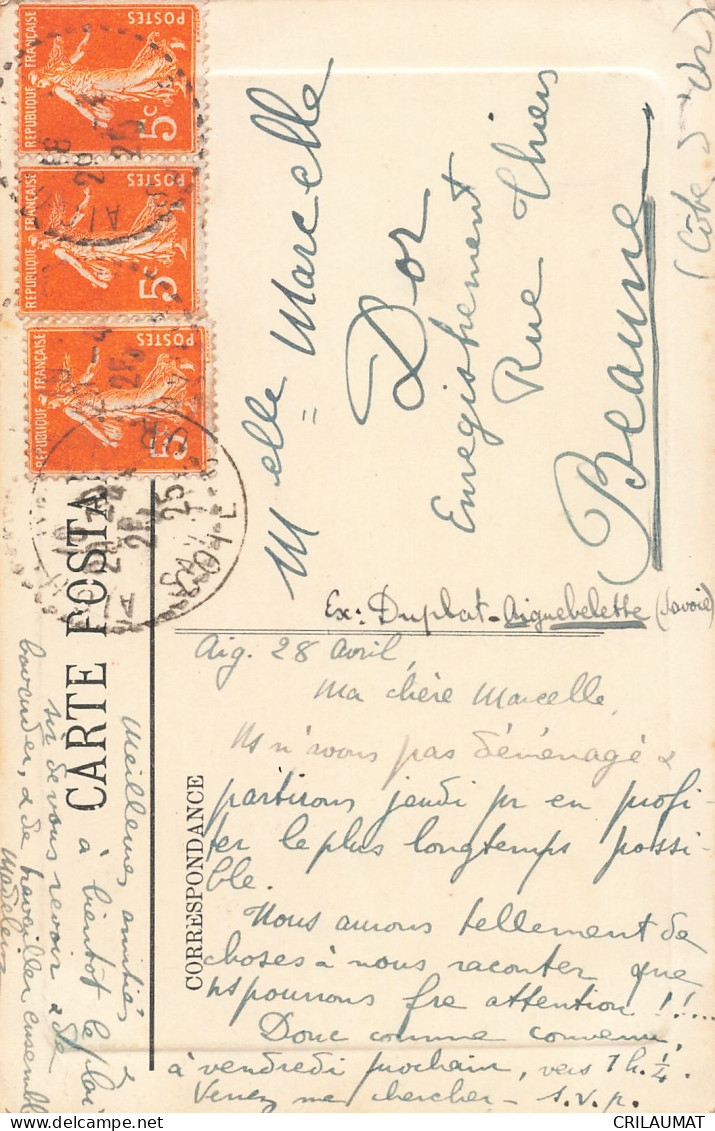 POSTES
RÉPUBLIQUE FRANÇAISE
5c
POSTES
RÉPUBLIQUE FRANÇAISE
5c
POSTES
RÉPUBLIQUE FRANÇAISE
5c
CARTE POSTA
CORRESPONDANCE
Melle Marcelle
Dor
Enregistrement
Rue Thiers
Beaune
(Côte d'Or)
Ex: Duplat - Aiguebelette (Savoie)
Aig. 28 avril,
Ma chère Marcelle,
Ns n'avons pas déménagé &
partirons jeudi pr en profi-
ter le plus longtemps possi-
ble.
Nous aurons tellement de
choses à nous raconter que
ns pourrons fre attention !!....
Donc comme convenu,
à vendredi prochain, vers 1h.¼.
Venez me chercher - s.v.p.
Meilleures amitiés &
à bientôt le plai
sir de vous revoir & de
bavarder, & de travailler ensemble
Madeleine
CRILAUMAT